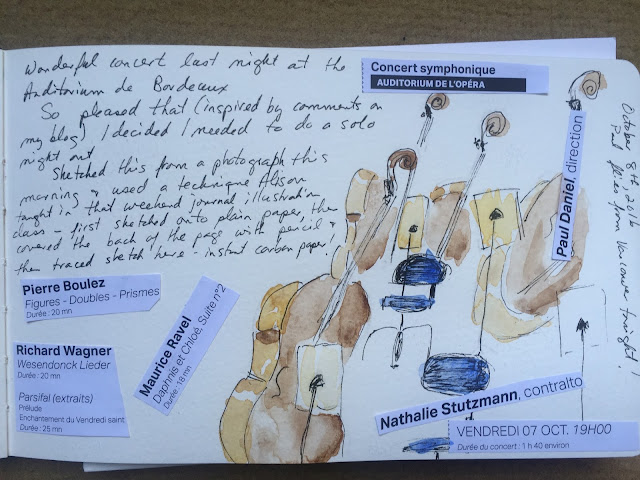 Wonderful concert last night at the
Auditorium de Bordeaux
So pleased that (inspired by comments on
my blog) I decided I needed to do a solo
night out
Sketched this from a photograph this
morning & used a technique Alison
taught in that weekend journal illustration
class - first sketched onto plain paper, then
covered the back of the page with pencil &
then traced sketch here - instant carbon paper!
Concert symphonique
AUDITORIUM DE L'OPÉRA
Paul Daniel, direction
October 8th, 2016
Paul flies from Vancouver tonight!
Pierre Boulez
Figures - Doubles - Prismes
Durée : 20 mn
Richard Wagner
Wesendonck Lieder
Durée : 20 mn
Parsifal (extraits)
Prélude
Enchantement du Vendredi saint
Durée : 25 mn
Maurice Ravel
Daphnis et Chloé, Suite n°2
Durée : 18 mn
Nathalie Stutzmann, contralto
VENDREDI 07 OCT. 19H00
Durée du concert : 1 h 40 environ